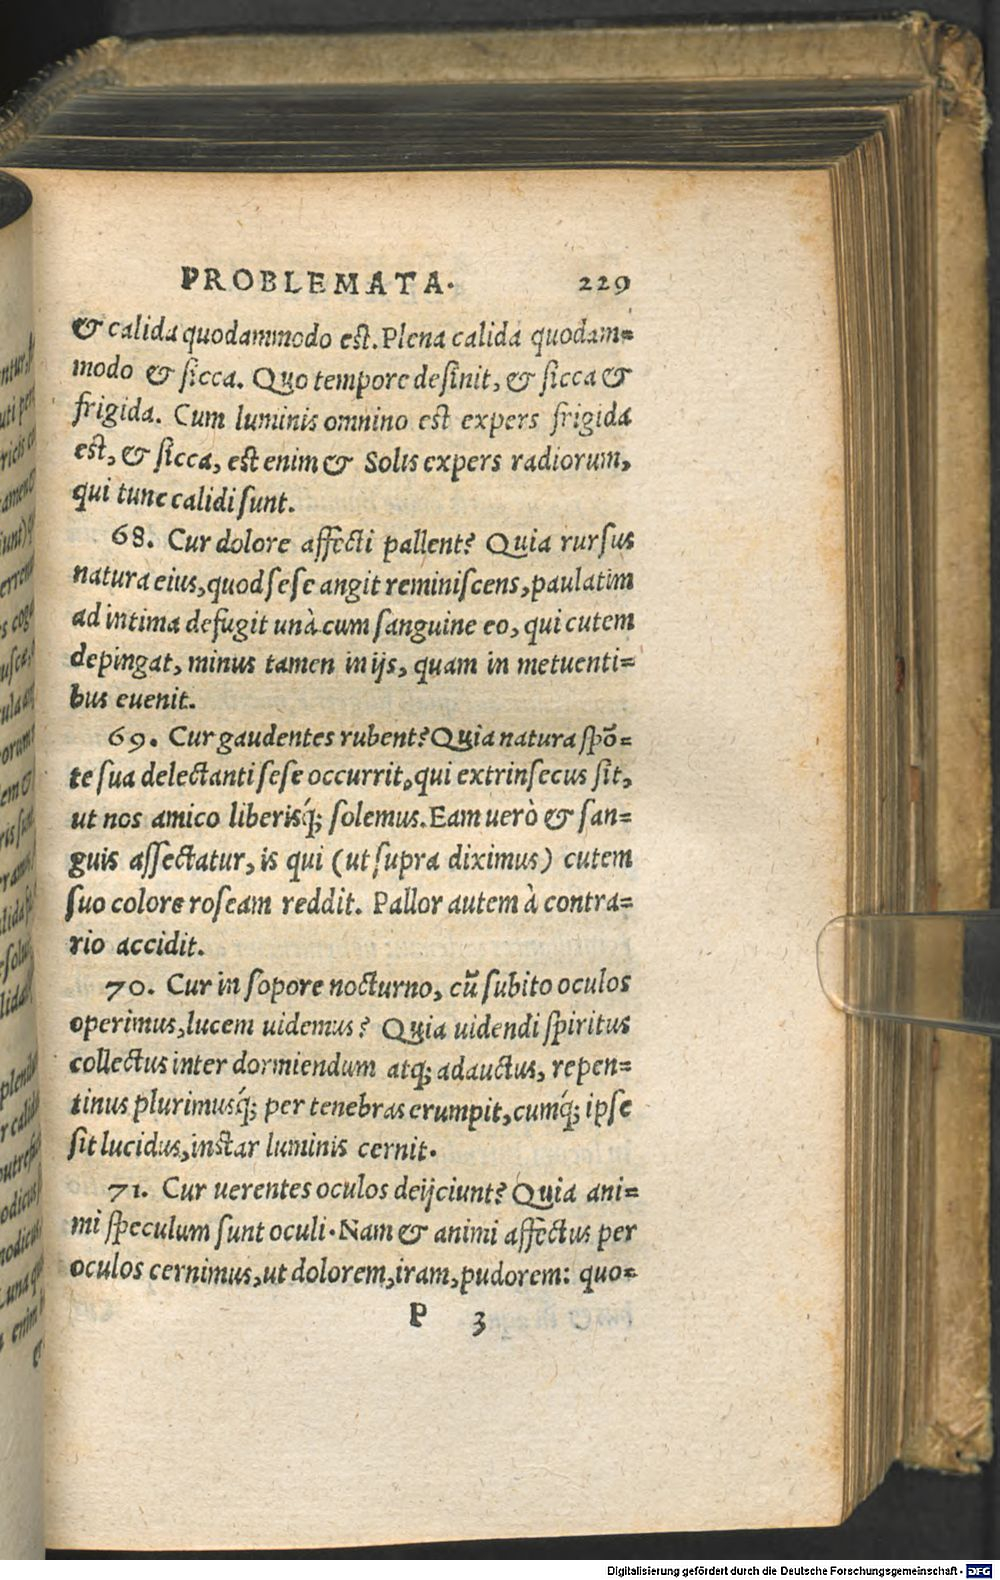 PROBLEMATA. 229
& calida quodammodo est. Plena calida quodam=
modo & sicca. Quo tempore desinit, & sicca &
frigida. Cum luminis omnino est expers frigida
est, & sicca, est enim & Solis expers radiorum,
qui tunc calidi sunt.
68. Cur dolore affecti pallent? Quia rursus
natura eius, quod sese angit reminiscens, paulatim
ad intima defugit unà cum sanguine eo, qui cutem
depingat, minus tamen in ijs, quam in metuenti=
bus euenit.
69. Cur gaudentes rubent? Quia natura spō=
te sua delectanti sese occurrit, qui extrinsecus sit,
ut nos amico liberisq́; solemus. Eam uerò & san=
guis assectatur, is qui (ut supra diximus) cutem
suo colore roseam reddit. Pallor autem à contra=
rio accidit.
70. Cur in sopore nocturno, cū subito oculos
operimus, lucem uidemus? Quia uidendi spiritus
collectus inter dormiendum atq; adauctus, repen=
tinus plurimusq́; per tenebras erumpit, cumq́; ipse
sit lucidus, instar luminis cernit.
71. Cur uerentes oculos deijciunt? Quia ani=
mi speculum sunt oculi. Nam & animi affectus per
oculos cernimus, ut dolorem, iram, pudorem: quo=
P 3
Digitalisierung gefördert durch die Deutsche Forschungsgemeinschaft - DFG